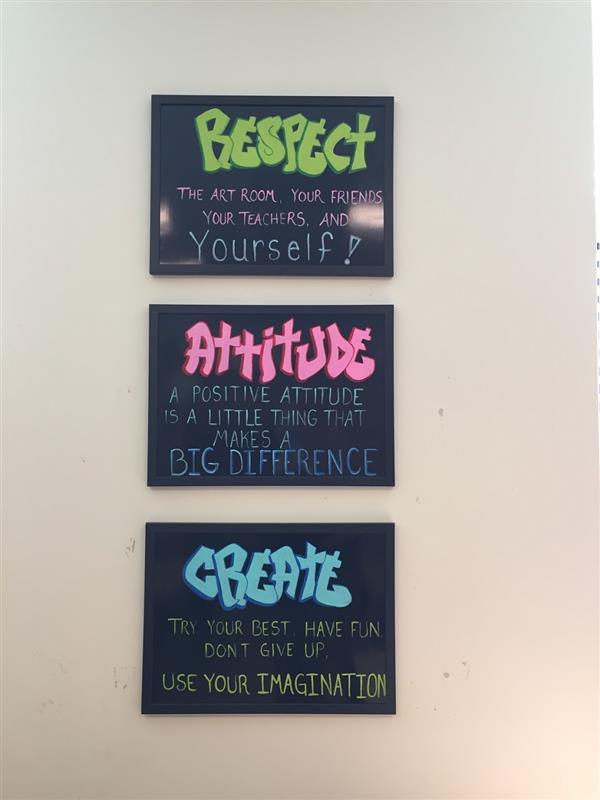 RESPECT
THE ART ROOM, YOUR FRIENDS
YOUR TEACHERS, AND
Yourself!
ATTITUDE
A POSITIVE ATTITUDE
IS A LITTLE THING THAT
MAKES A
BIG DIFFERENCE
CREATE
TRY YOUR BEST, HAVE FUN,
DONT GIVE UP,
USE YOUR IMAGINATION